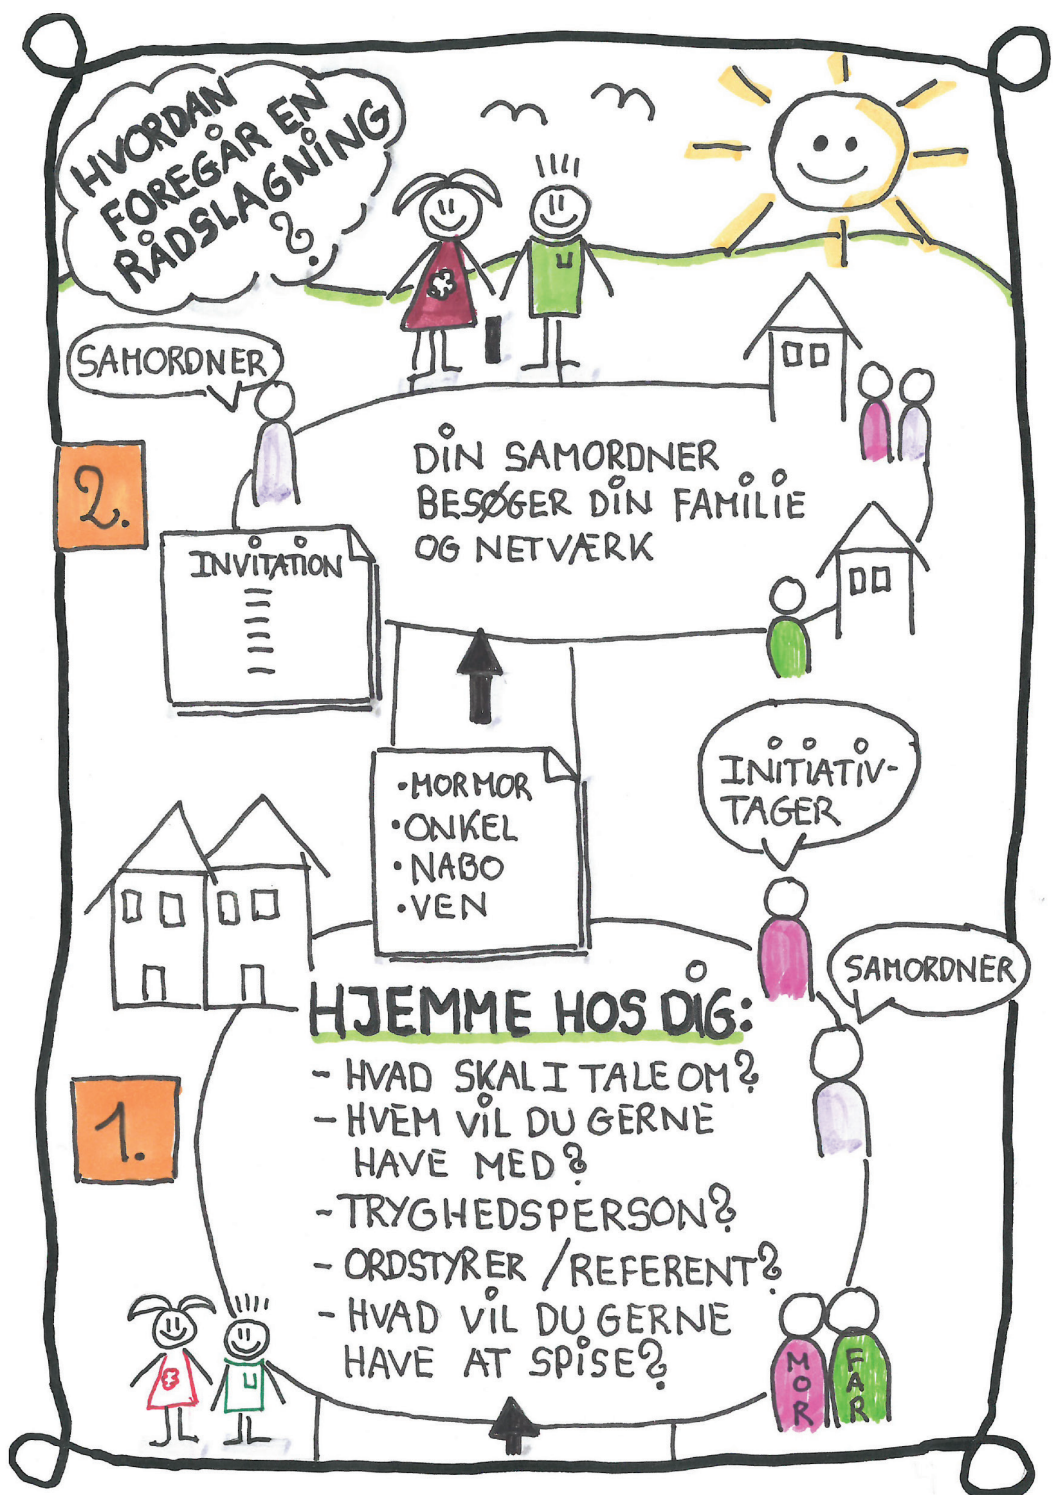 HVORDAN
FOREGÅR EN
RÅDSLAGNING
?
SAMORDNER
2.
DIN SAMORDNER
BESØGER DIN FAMILIE
OG NETVÆRK
INVITATION
INITIATIV-
TAGER
• MORMOR
• ONKEL
• NABO
• VEN
SAMORDNER
HJEMME HOS DIG:
1.
- HVAD SKAL I TALE OM?
- HVEM VIL DU GERNE
HAVE MED?
- TRYGHEDSPERSON?
- ORDSTYRER / REFERENT?
- HVAD VIL DU GERNE
HAVE AT SPISE?
MOR
FAR